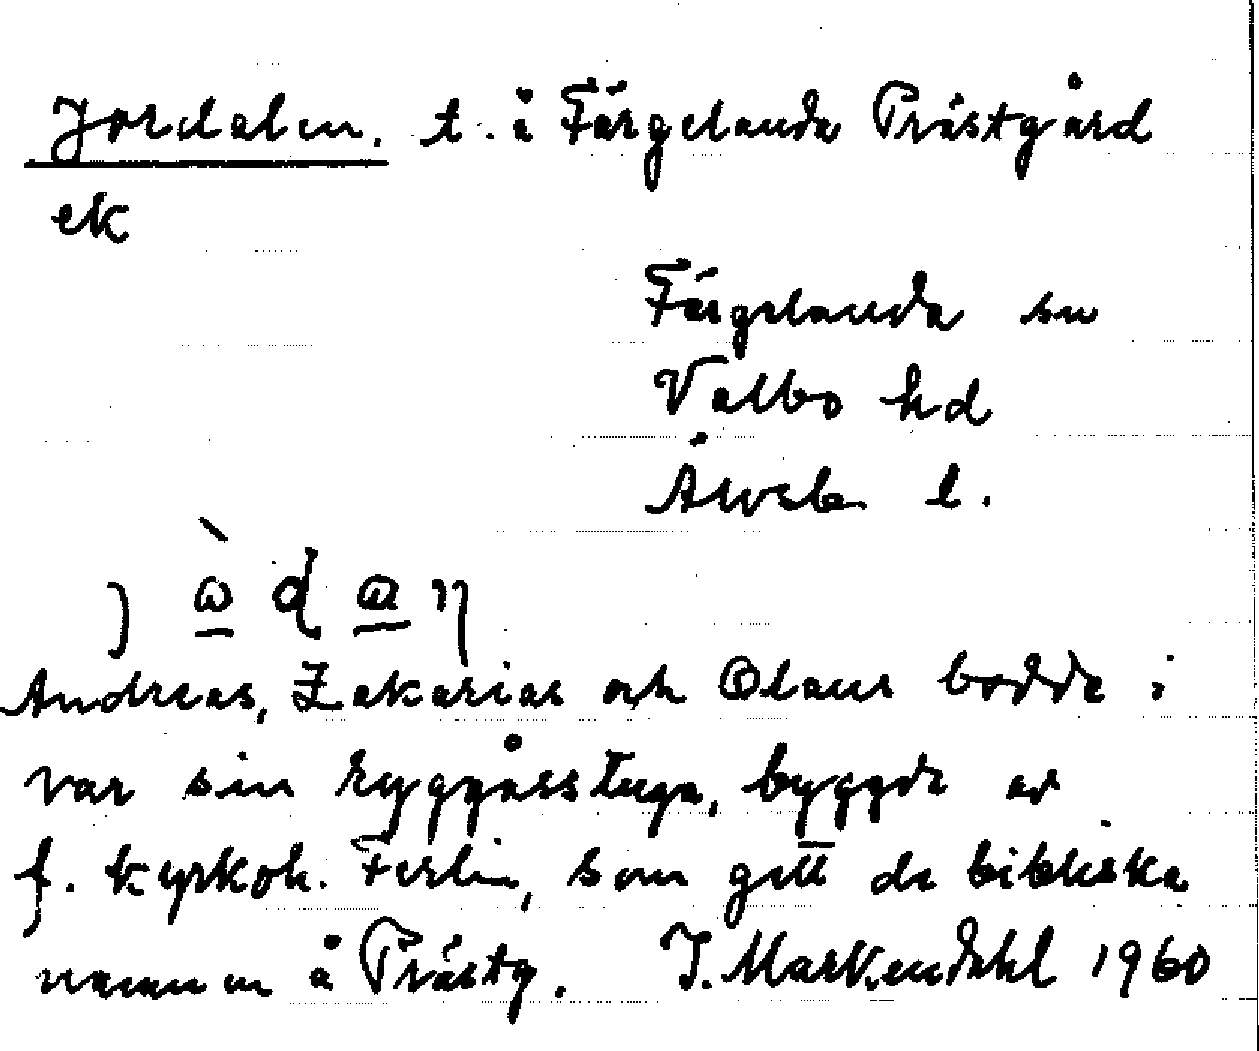 Jordalen. t. å Färgelanda Prästgård
ek
Färgelanda sn
Valbo hd
Älvsb. l.
Andreas, Zakarias och Olaus bodde i
var sin ryggåsstuga, byggda av
f. kyrkoh. Ferlin, som gett de bibliska
namnen å Prästg. J. Markendahl 1960